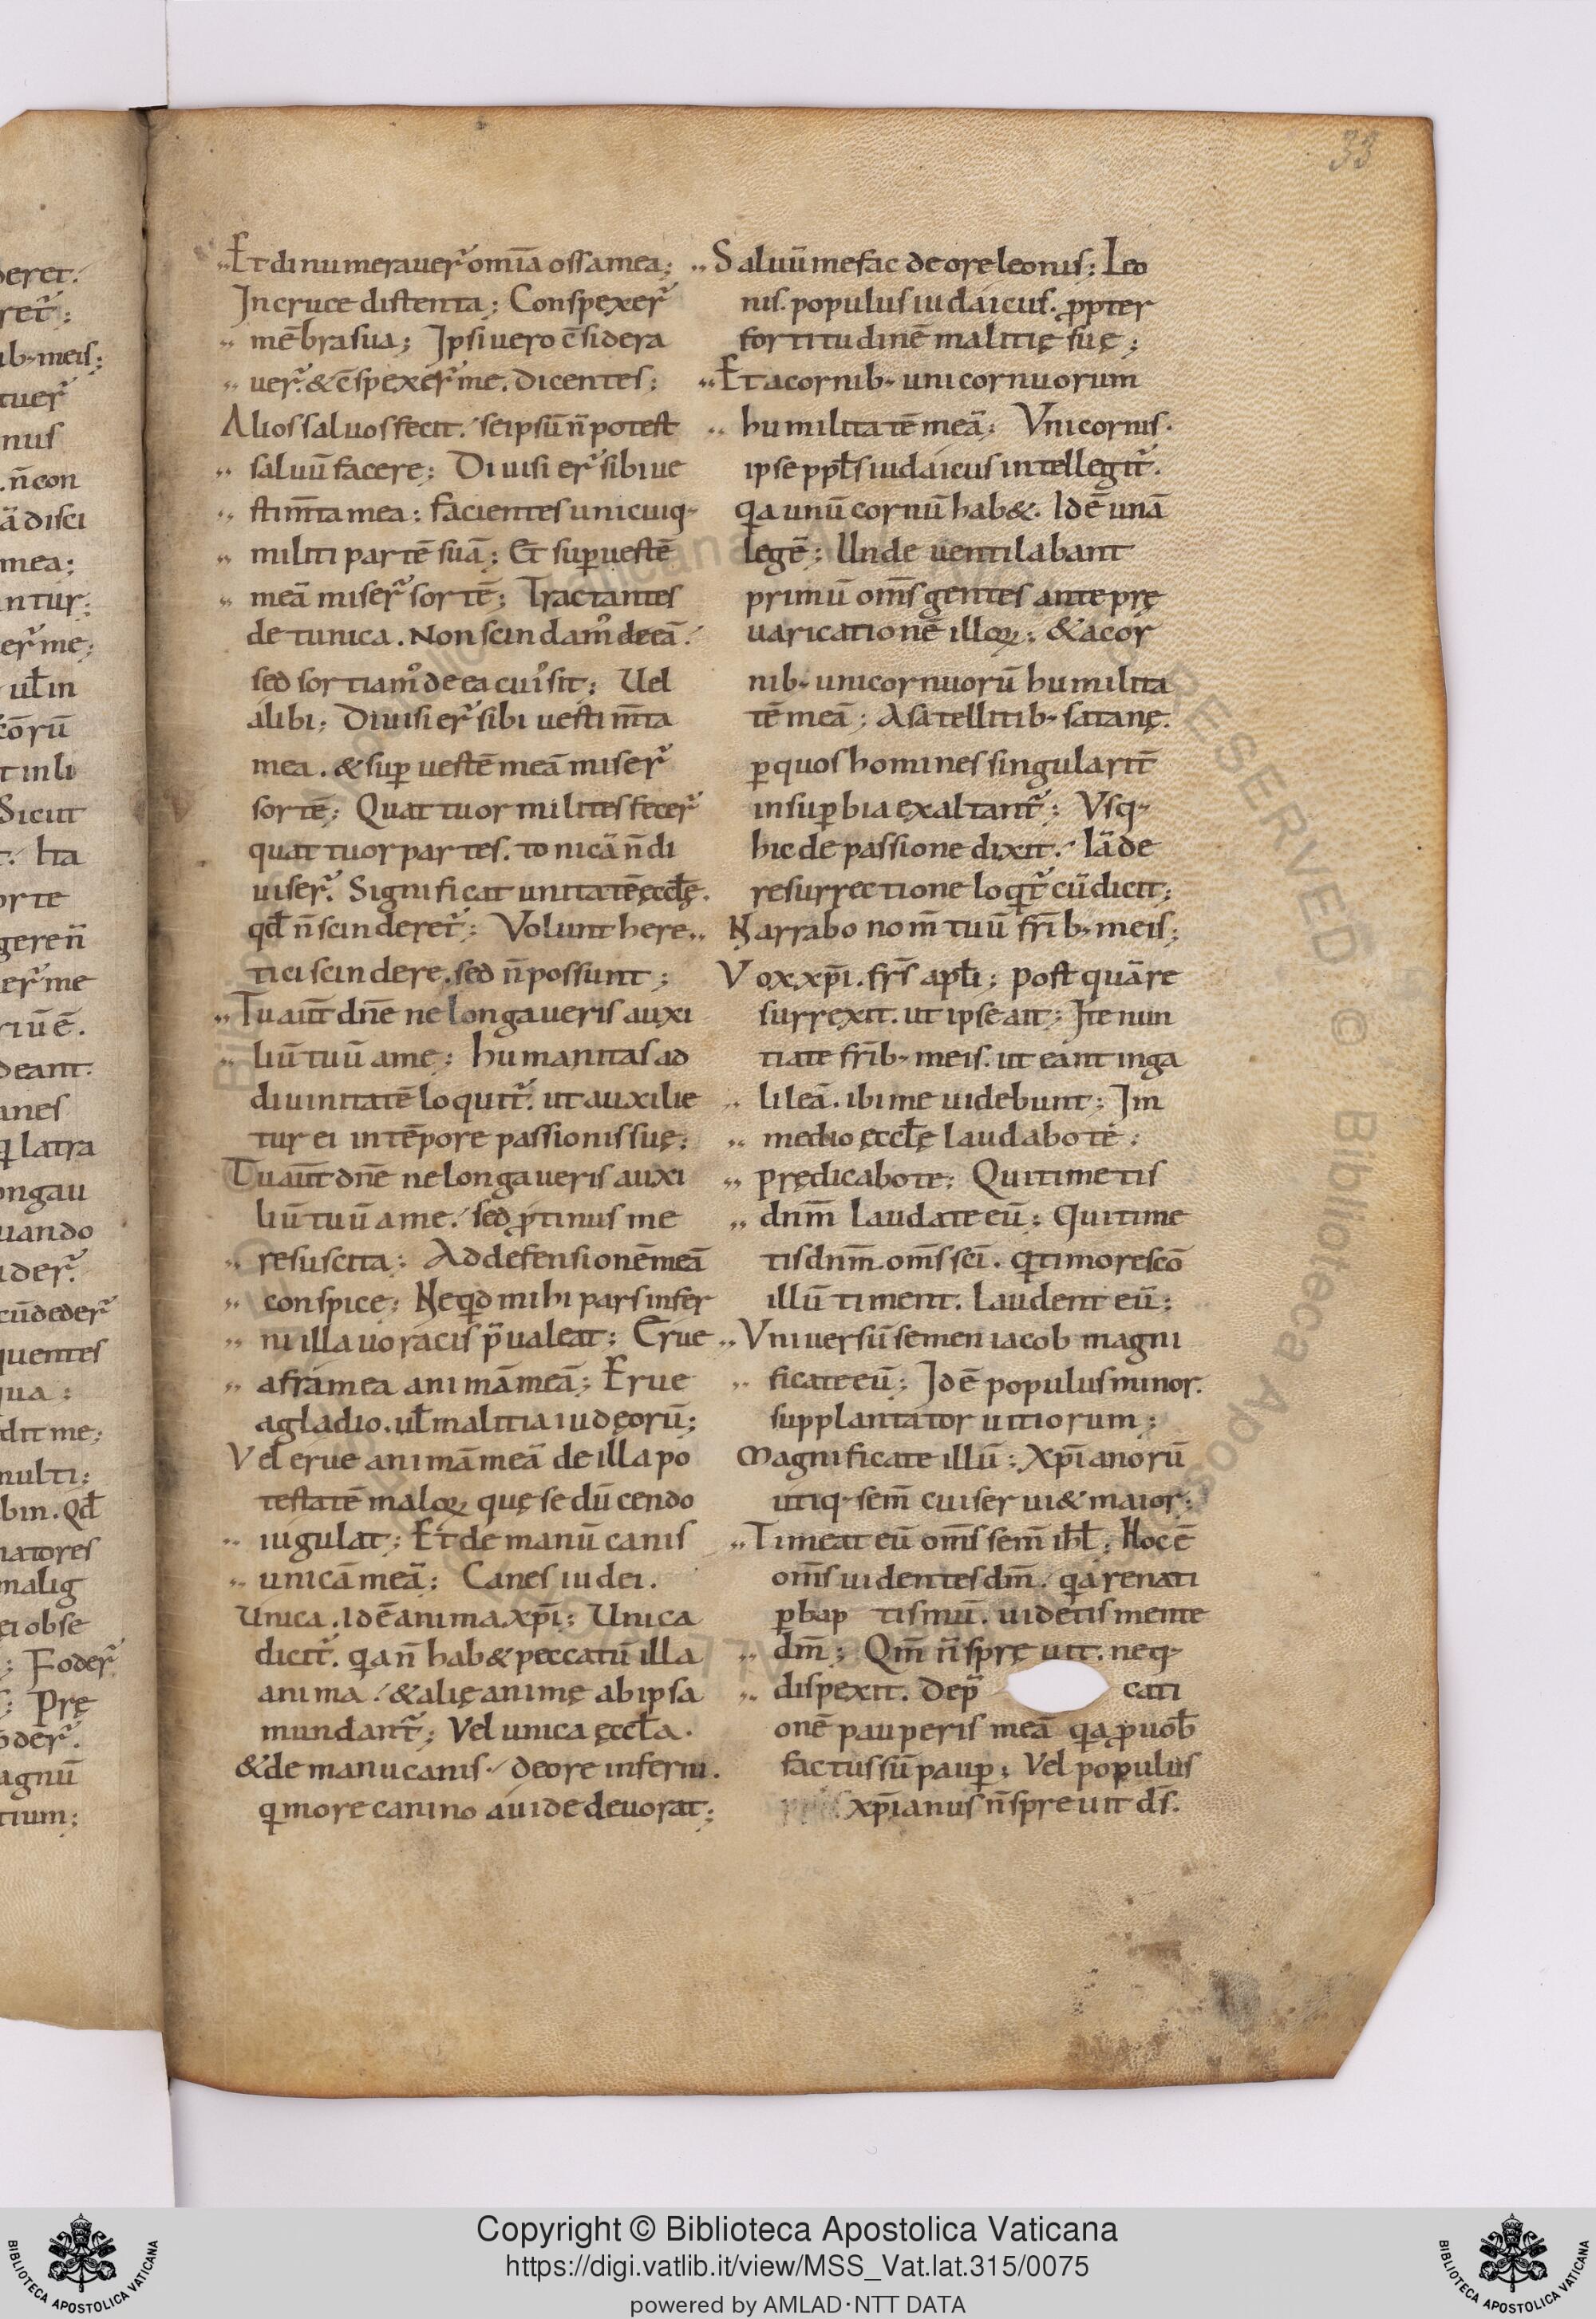 33
„Et dinumerauer̃ om̅ia ossa mea;
In cruce distenta; Conspexer̃
„ mẽbra sua; Ipsi uero c̃sidera
„ uer̃. & c̃spexer̃ me. dicentes;
Alios saluos fecit. seipsũ ñ potest
„ saluũ facere; Diuiser̃ sibi ue
„ stim̅ta mea; facientes unicuiq·
„ militi partẽ suã; Et sup uestẽ
„ meã miser̃ sortẽ; Tractantes
de tunica. Non scindam᾿ de eã.
sed sortiam᾿ de ea cui᾿ sit; Uel
alibi; Diuiser̃ sibi uestim̅ta
mea. & sup uestẽ meã miser̃
sortẽ; Quattuor milites fecer̃
quattuor partes. tonicã ñ di
uiser̃. Significat unitatẽ ęccl̅ę.
qd̅ ñ scinderet̃; Volunt here
tici scindere. sed ñ possunt;
„Tu aut̅ dn̅e ne longaueris auxi
„ liũ tuũ a me; humanitas ad
diuinitatẽ loquit̃. ut auxilie
tur ei in tẽpore passionis suę;
Tu aut̅ dn̅e ne longaueris auxi
liũ tuũ a me. sed p̱tinus me
„ resuscita; Ad defensionẽ meã
„ conspice; Neqd mihi pars infer
„ ni illa uoracis p̃ualeat; Erue
„ a framea animã meã; Erue
a gladio. ul̅ malitia iudęorũ;
Vel erue animã meã de illa po
testatẽ maloꝝ quę seducendo
„ iugulat; Et de manũ canis
„ unicã meã; Canes iudei.
Unica. idẽ anima xp̅i; Unica
dicit̃. qa ñ hab& peccatũ illa
anima. & alię animę ab ipsa
mundant̃; Vel unica ęccl̅a.
& de manu canis. de ore inferni.
q more canino auide deuorat;
„Saluũ me fac de ore leonis; Leo
nis. populus iudaicus. ꝓpter
fortitudinẽ malitię suę;
„Et a cornib· unicornuorum
„ humilitatẽ meã; Vnicornis.
ipse ppl̅s iudaicus intellegit̃.
qa unũ cornũ hab&. Idẽ unã
legẽ; Unde uentilabant
primũ om̅s gentes ante prę
uaricationẽ illoꝝ; & a cor
nib· unicornuorũ humilita
tẽ meã; A satellitib· satanę.
p quos homines singularit̅
in supbia exaltant̃; Vsq·
hic de passione dixit. Iã de
resurrectione loqt̃ cũ dicit;
„ Narrabo nom̅ tuũ fr̅ib· meis;
Vox xp̅i. fr̅s apl̅i; postquã re
surrexit. ut ipse ait; Ite nun
tiate fr̅ib· meis. ut eant in ga
„ lileã. ibi me uidebunt; In
„ medio ęccl̅ę laudabo te;
„ prędicabo te; Qui timetis
„ dnm̅ laudate eũ; Qui time
tis dnm̅. om̅s sc̅i. q timore sc̅o
illũ timent. laudent eũ;
„Vniuersũ semen iacob magni
„ ficate eũ; Idẽ populus minor.
supplantator uitiorum;
Magnificate illũ; Xp̅ianorũ
utiq· sem̅ cui serui& maior;
„Timeat eũ om̅s sem̅ ihl̅; Hoc ẽ
om̅s uidentes dm̅. qa renati
p bap tismũ. uidetis mente
„ dm̅; Qm̅ ñ spręuit. neq·
„ dispexit. dep̃ cati
onẽ pauperis meã qa ꝓ uob̅
factus sũ paup; Vel populus
xp̅ianus ñ spreuit d̅s.
Copyright © Biblioteca Apostolica Vaticana
https://digi.vatlib.it/view/MSS_Vat.lat.315/0075
powered by AMLAD·NTT DATA
BIBLIOTECA APOSTOLICA VATICANA
BIBLIOTECA APOSTOLICA VATICANA